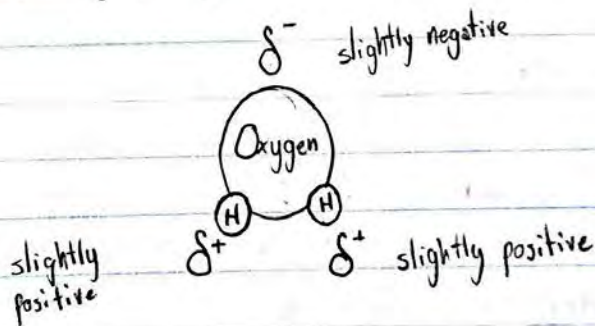 δ⁻ slightly negative
Oxygen
H H
slightly positive
δ⁺ δ⁺ slightly positive